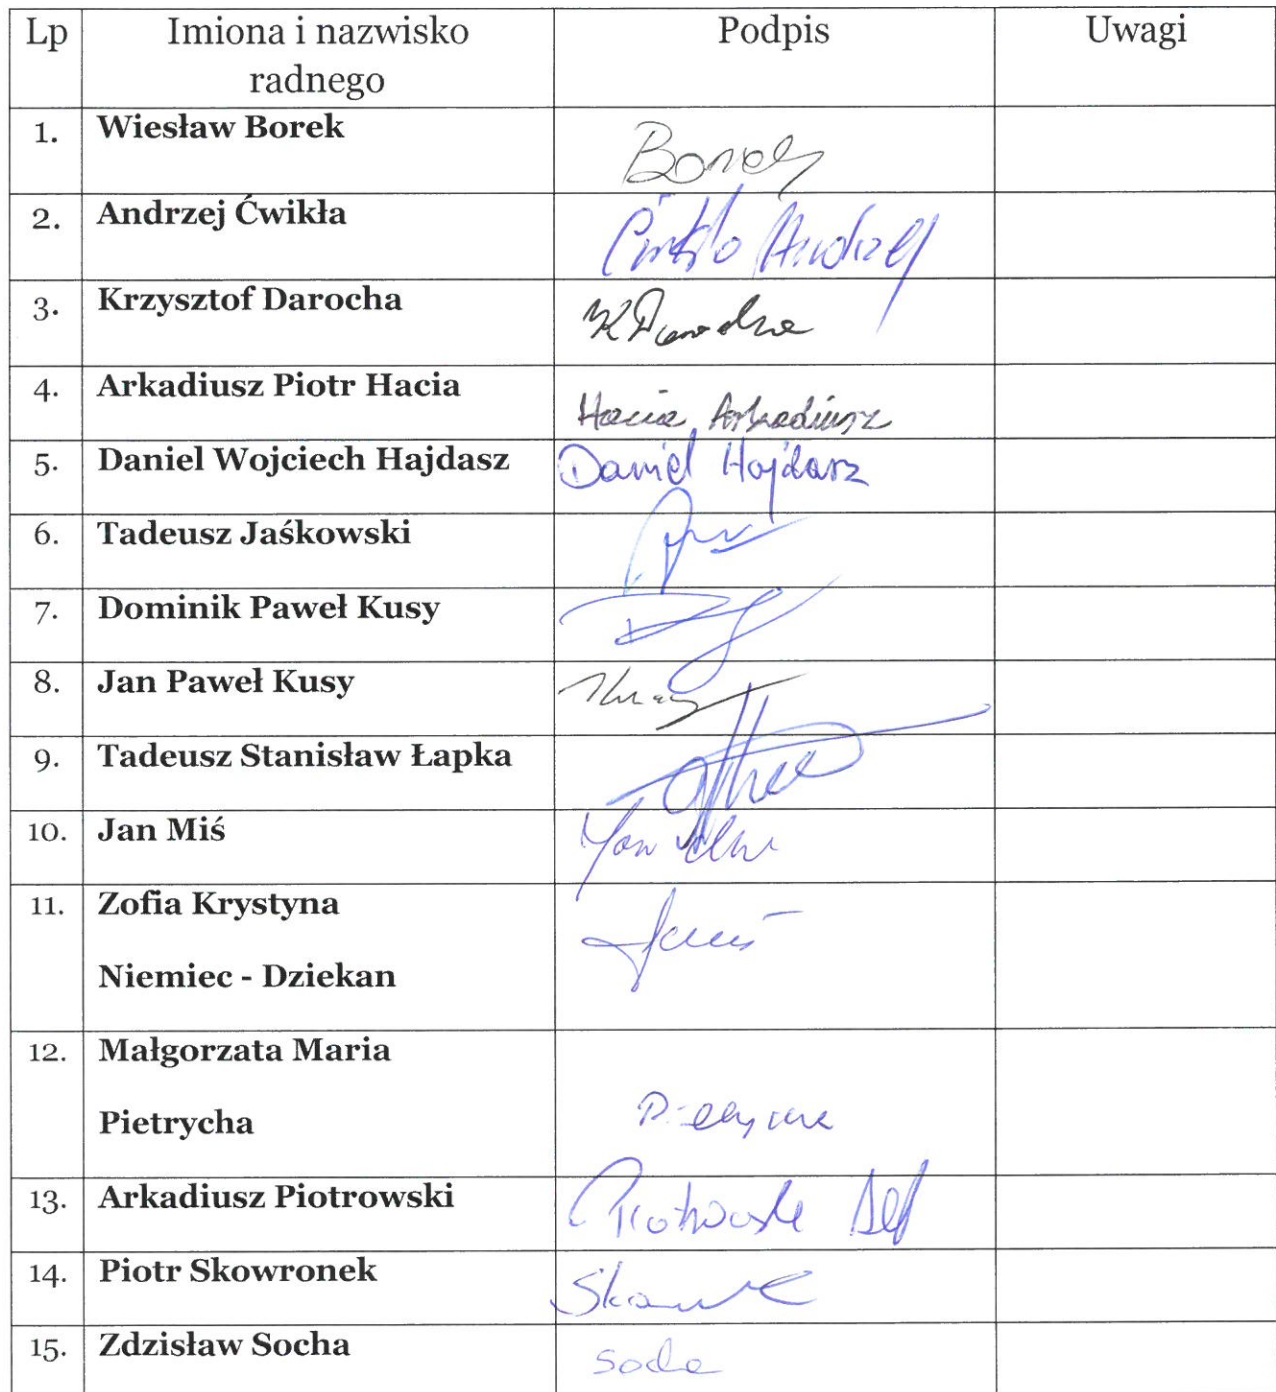 Lp Imiona i nazwisko Podpis Uwagi
radnego
1. Wiesław Borek Borek
2. Andrzej Ćwikła Ćwikła Andrzej
3. Krzysztof Darocha K Darocha
4. Arkadiusz Piotr Hacia Hacia Arkadiusz
5. Daniel Wojciech Hajdasz Daniel Hajdasz
6. Tadeusz Jaśkowski
7. Dominik Paweł Kusy
8. Jan Paweł Kusy
9. Tadeusz Stanisław Łapka
10. Jan Miś Jan
11. Zofia Krystyna
Niemiec - Dziekan
12. Małgorzata Maria
Pietrycha
13. Arkadiusz Piotrowski Piotrowski
14. Piotr Skowronek
15. Zdzisław Socha Socha